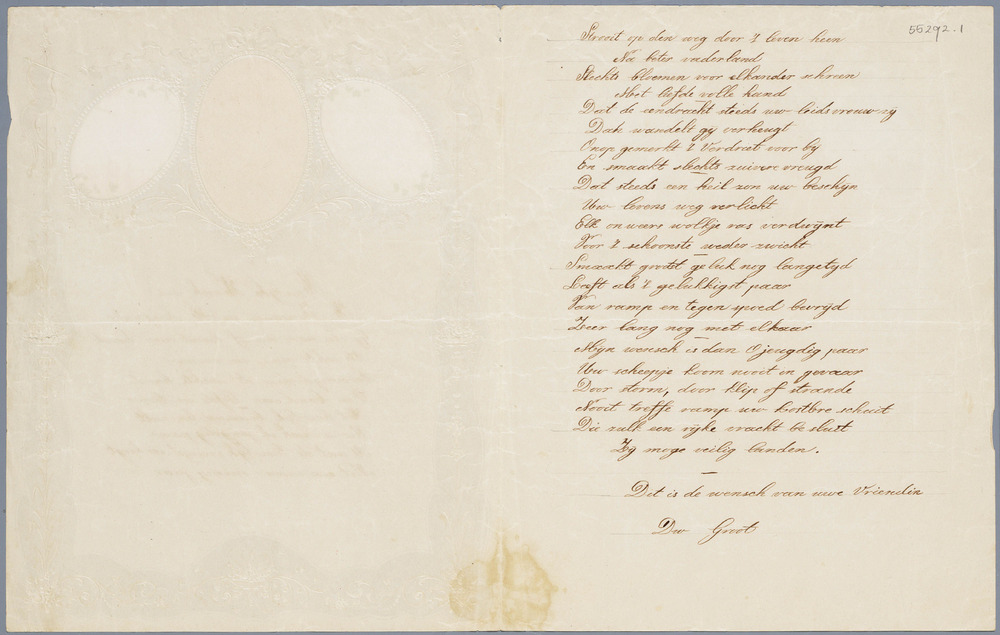 55292.1
Strooit op den weg door 't leven heen
Na beter vaderland
Slechts bloemen voor elkander schreen
Met liefde volle hand
Dat de eendracht steeds uw leidsvrouw zij
Dan wandelt gij verheugt
Onop gemerkt 't Verdriet voor bij
En smaakt slechts zuivere vreugd
Dat steeds een heil zon uw beschijn
Uw levens weg verlicht
Elk onweers wolkje ras verdwijnt
Voor 't schoonste weder zwicht
Smaakt grootst geluk nog langetijd
Leeft als 't gelukkigst paar
Van ramp en tegen spoed bevrijd
Zeer lang nog met elkaar
Mijn wensch is dan O jeugdig paar
Uw scheepje koom nooit in gevaar
Door storm, door klip of strande
Nooit treffe ramp uw kostbre schuit
Die zulk een rijke vracht besluit
Zij moge veilig landen.
Dit is de wensch van uwe Vriendin
Dw Groot